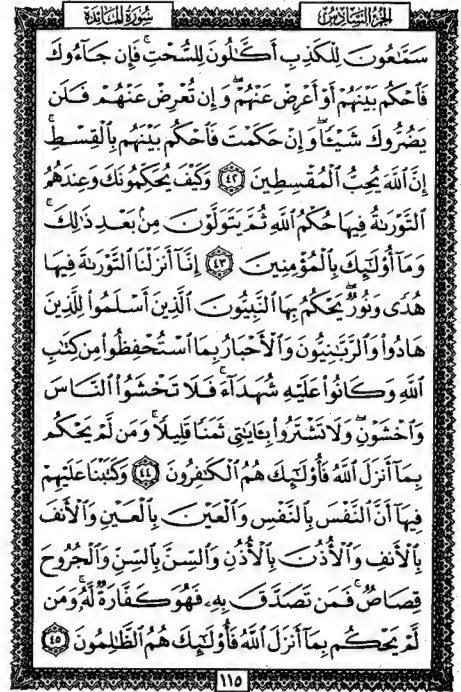 الجزء السادس سورة المائدة
سَمَّٰعُونَ لِلْكَذِبِ أَكَّٰلُونَ لِلسُّحْتِ ۚ فَإِن جَآءُوكَ
فَٱحْكُم بَيْنَهُمْ أَوْ أَعْرِضْ عَنْهُمْ ۖ وَإِن تُعْرِضْ عَنْهُمْ فَلَن
يَضُرُّوكَ شَيْـًٔا ۖ وَإِنْ حَكَمْتَ فَٱحْكُم بَيْنَهُم بِٱلْقِسْطِ ۚ
إِنَّ ٱللَّهَ يُحِبُّ ٱلْمُقْسِطِينَ ٤٢ وَكَيْفَ يُحَكِّمُونَكَ وَعِندَهُمُ
ٱلتَّوْرَىٰةُ فِيهَا حُكْمُ ٱللَّهِ ثُمَّ يَتَوَلَّوْنَ مِنۢ بَعْدِ ذَٰلِكَ ۚ
وَمَآ أُو۟لَٰٓئِكَ بِٱلْمُؤْمِنِينَ ٤٣ إِنَّآ أَنزَلْنَا ٱلتَّوْرَىٰةَ فِيهَا
هُدًى وَنُورٌ ۚ يَحْكُمُ بِهَا ٱلنَّبِيُّونَ ٱلَّذِينَ أَسْلَمُوا۟ لِلَّذِينَ
هَادُوا۟ وَٱلرَّبَّٰنِيُّونَ وَٱلْأَحْبَارُ بِمَا ٱسْتُحْفِظُوا۟ مِن كِتَٰبِ
ٱللَّهِ وَكَانُوا۟ عَلَيْهِ شُهَدَآءَ ۚ فَلَا تَخْشَوُا۟ ٱلنَّاسَ
وَٱخْشَوْنِ ۖ وَلَا تَشْتَرُوا۟ بِـَٔايَٰتِى ثَمَنًا قَلِيلًا ۚ وَمَن لَّمْ يَحْكُم
بِمَآ أَنزَلَ ٱللَّهُ فَأُو۟لَٰٓئِكَ هُمُ ٱلْكَٰفِرُونَ ٤٤ وَكَتَبْنَا عَلَيْهِمْ
فِيهَآ أَنَّ ٱلنَّفْسَ بِٱلنَّفْسِ وَٱلْعَيْنَ بِٱلْعَيْنِ وَٱلْأَنفَ
بِٱلْأَنفِ وَٱلْأُذُنَ بِٱلْأُذُنِ وَٱلسِّنَّ بِٱلسِّنِّ وَٱلْجُرُوحَ
قِصَاصٌ ۚ فَمَن تَصَدَّقَ بِهِۦ فَهُوَ كَفَّارَةٌ لَّهُۥ ۚ وَمَن
لَّمْ يَحْكُم بِمَآ أَنزَلَ ٱللَّهُ فَأُو۟لَٰٓئِكَ هُمُ ٱلظَّٰلِمُونَ ٤٥
١١٥